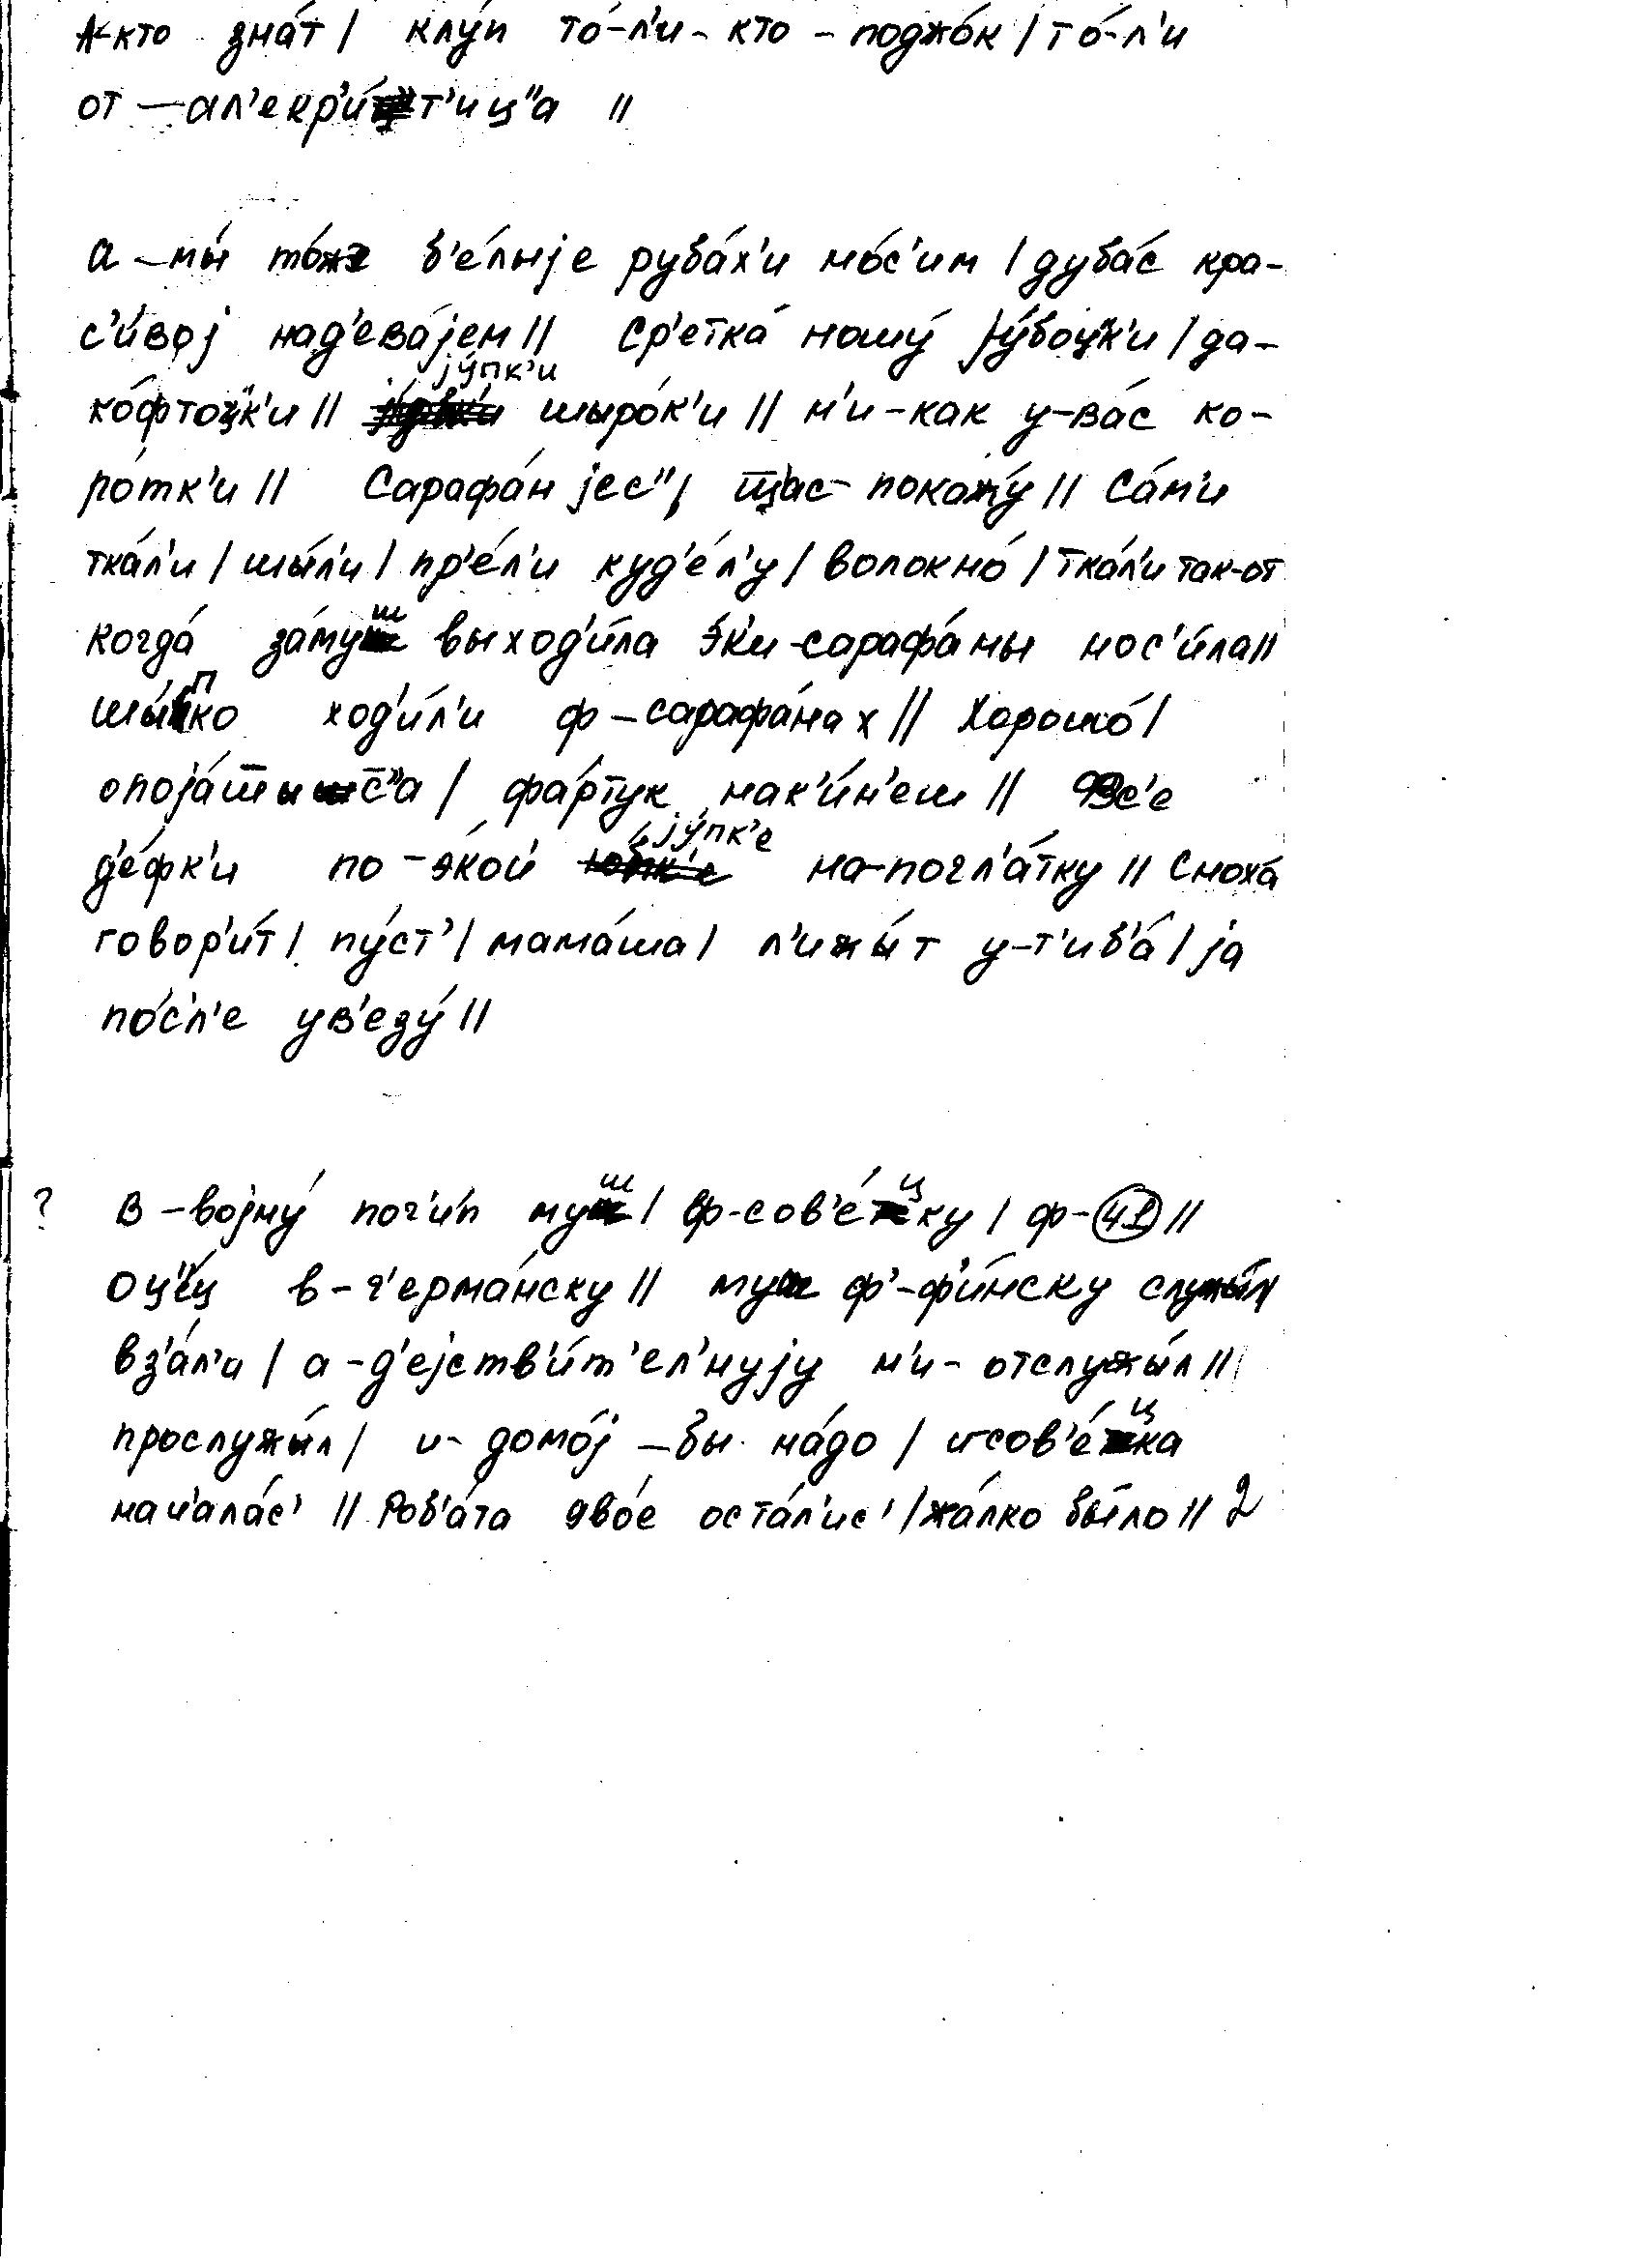 А-кто зна́т / клу́п то́-л'и-кто-поджо́к / то́-л'и
от-ал'екр'и́т'иц"а //
а-мы́ то́же б'е́лыjе руба́х'и но́с'им / дуба́с кра-
с'и́воj над'ева́jем // ср'етка́ ношу́ jу́боц"к'и / да-
ко́фтоц"к'и // jу́пк'и шыро́к'и // н'и-как у-ва́с ко-
ро́тк'и // Сарафа́н jес" / щас покажу́ // Са́м'и
тка́л'и / шы́л'и / пр'е́л'и куд'е́л'у / волокно́ / тка́л'и так-от
когда́ за́муш выход'и́ла э́к'и-сарафа́ны нос'и́ла //
шы́пко ход'и́л'и ф-сарафа́нах // Хорошо́ /
опоjа́шыс"а / фа́ртук нак'и́н'еш // Фс'е
д'е́фк'и по-э́кой jу́пк'е на-погл'а́тку // Сноха́
говор'и́т / пу́ст' / мама́ша / л'ижы́т у-т'иб'а́ / jа
по́сл'е ув'езу́ //
? В-воjну́ пог'и́п муш / ф-сов'е́цку / ф-41 //
Оц"е́ц в-г'ерма́нску // муш ф'-ф'и́нску служы́л
вз'а́л'и / а-д'еjств'и́т'ел'нуjу н'и-отслужы́л //
прослужы́л / и-домо́j-бы на́до / и-сов'е́цка
нач'ала́с' // Роб'а́та дво́е оста́л'ис' / жа́лко бы́ло // 2